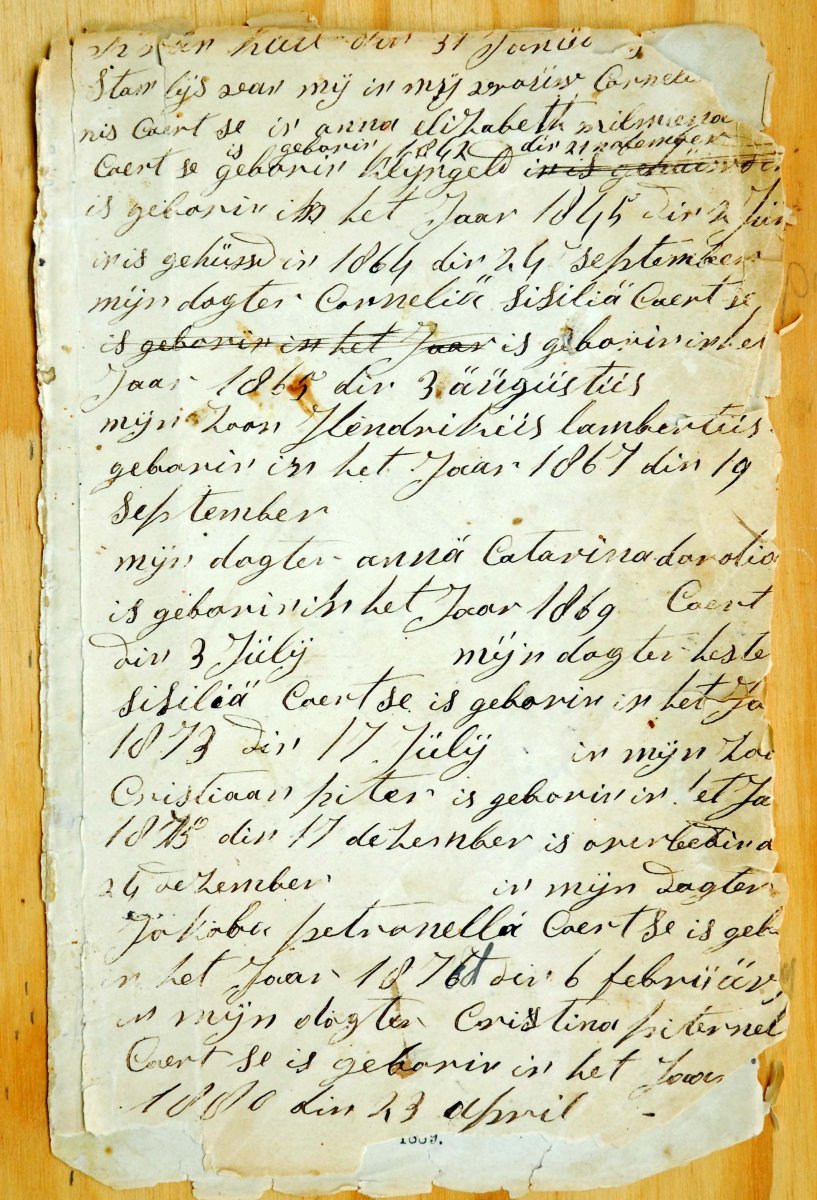 den 31 Janüa
Stam lijs van mij in mij vroüw Corneli
nis Coert se in anna elizabeth wilmiena
is geborin 1842 din 21 november
Coert se geborin Klijngeld in is gehüwd in
is geborin in het Jaar 1845 din 2 Jun
in is gehüwd in 1864 din 24 september
mijn dogter Corneliä Sisiliä Coert se
is geborin in het Jaar is geborin in het
Jaar 1865 din 3 äügüstüs
mijn zoon Hendriküs lambertüs
geborin in het Jaar 1867 din 19
September
mijn dogter annä Catarina dorotia
is geborin in het Jaar 1869 Coert
din 3 Jülij mijn dogter heste
Sisiliä Coertse is geborin in het Ja
1873 din 17 Jülij in mijn zoo
Cristiaan piter is geborin in 'et Ja
1875 din 17 dezember is overledin d
24 dezember in mijn dogter
Jakoba petronella Coert se is geb
in het Jaar 1876 din 6 febrüär
in mijn dogter Cristina piternel
Coert se is geborin in het Jaar
1880 din 23 april